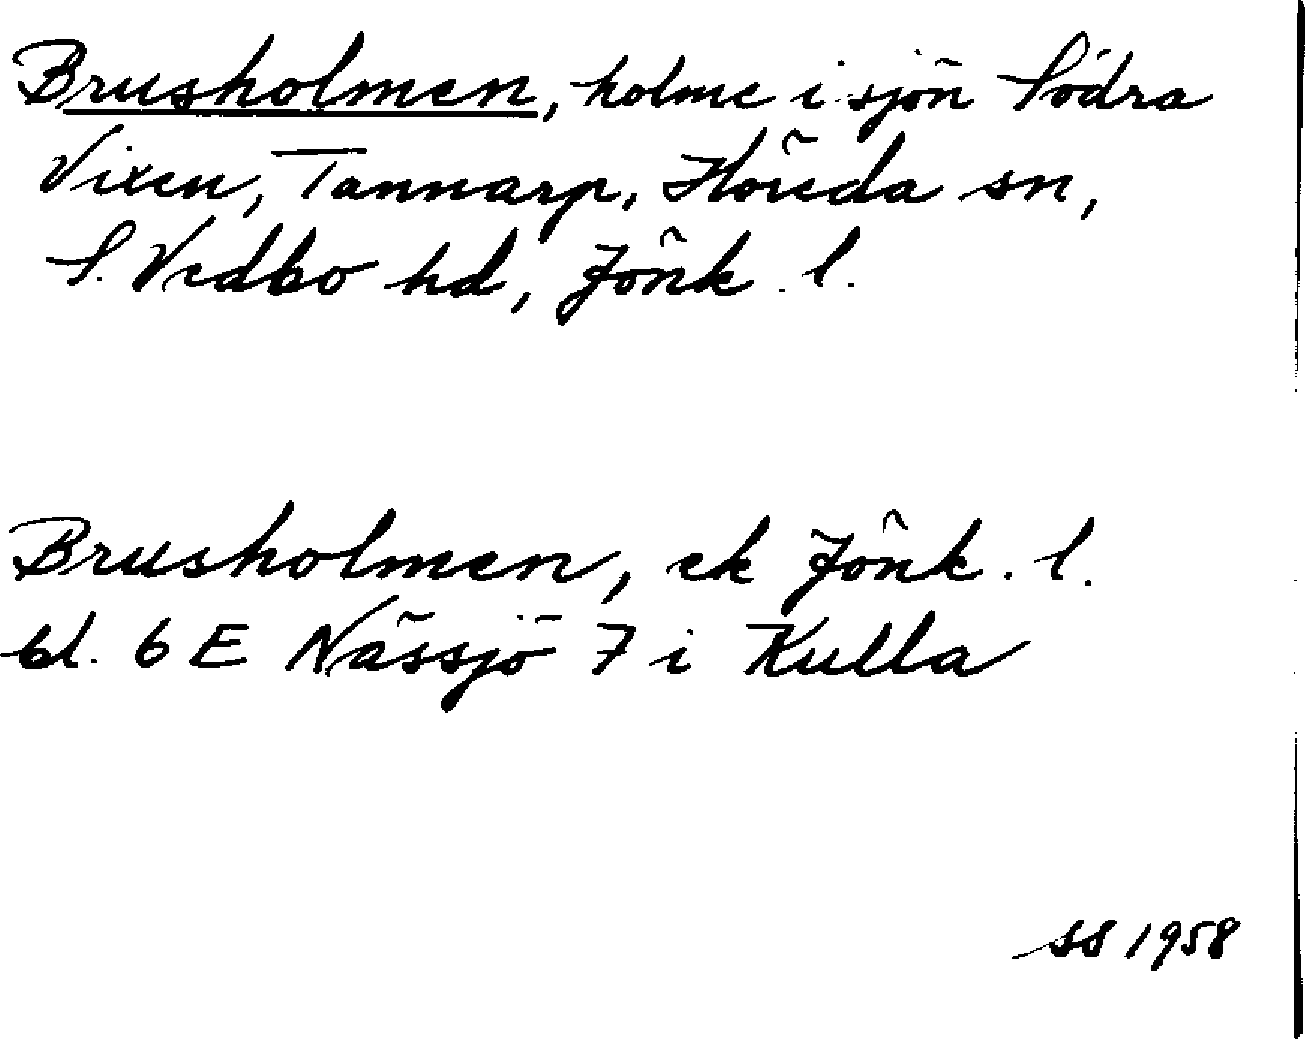 Brusholmen, holme i sjön Södra
Vixen, Tannarp, Höreda sn,
S. Vedbo hd, Jönk. l.
Brusholmen, ek Jönk. l.
bl. 6 E Nässjö 7 i Kulla
SS 1958